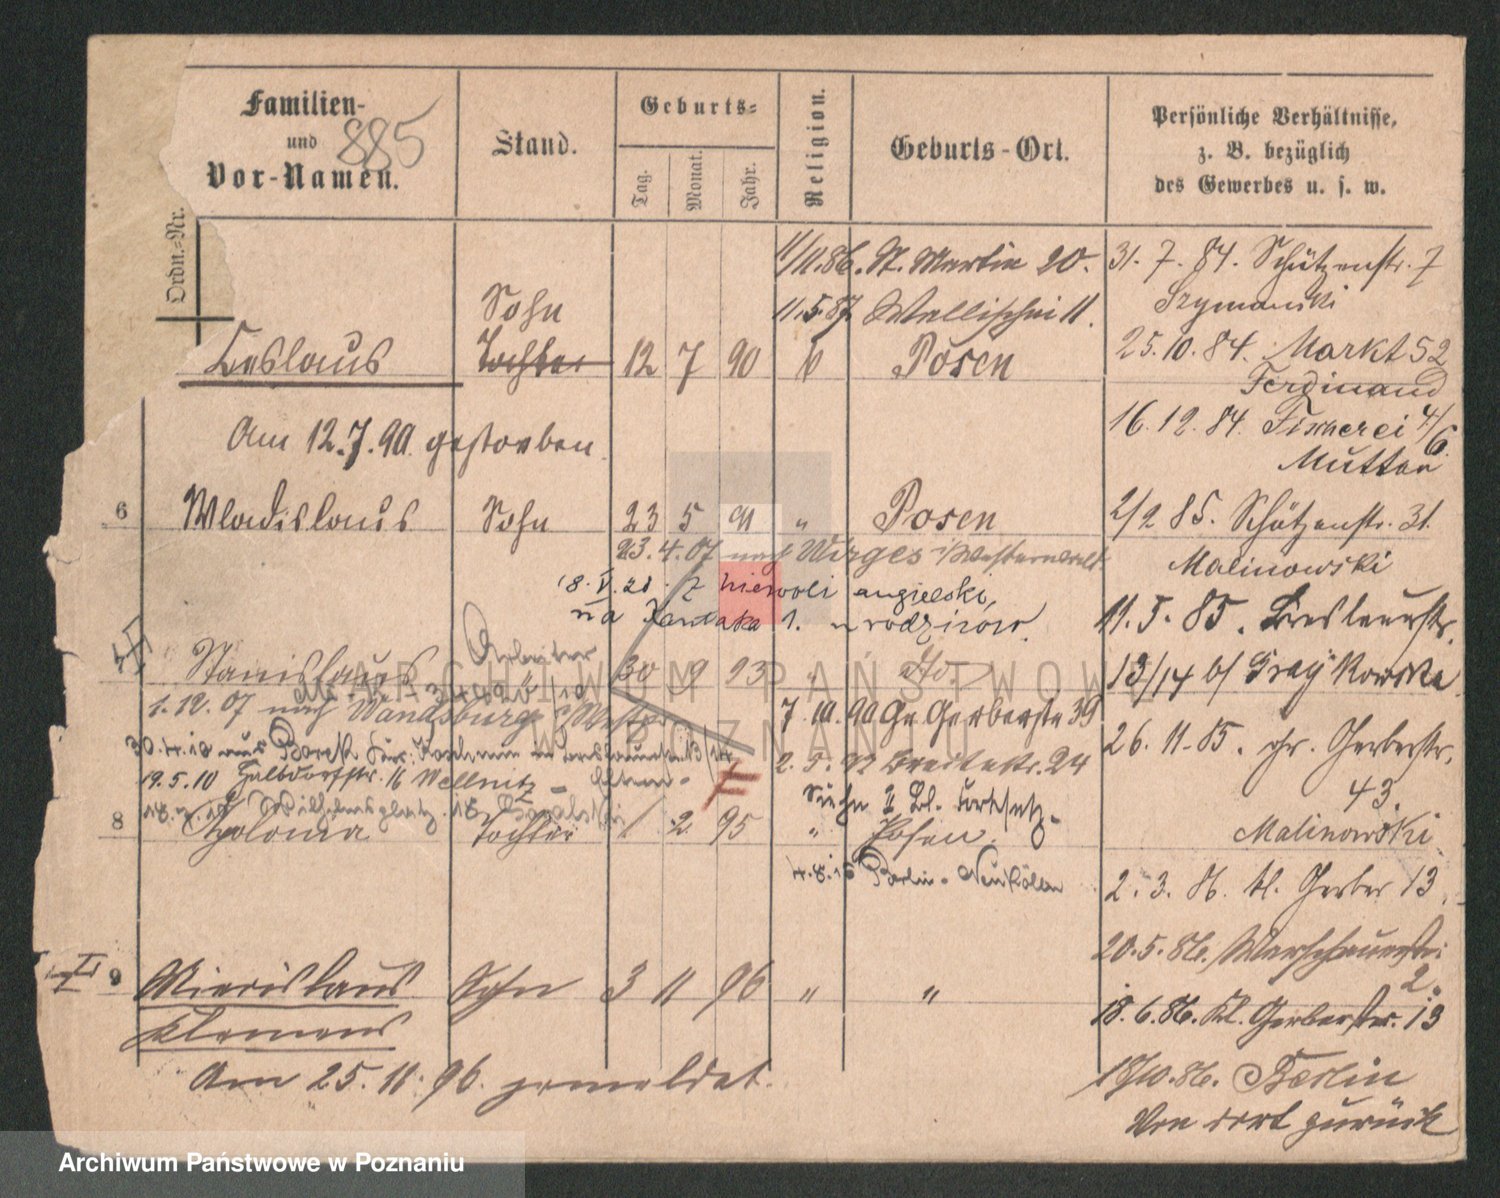 Familien-
und
Vor-Namen.
885
Stand.
Geburts-
Tag.
Monat.
Jahr.
Religion.
Geburts-Ort.
Persönliche Verhältnisse,
z. B. bezüglich
des Gewerbes u. s. w.
Ordn.-Nr.
11/11.86. St. Martin 20.
11.5.87. Wallischei 11.
Sohn
Ceslaus Tochter 12 7 90 k Posen
Am 12.7.90. gestorben.
6 Wladislaus Sohn 23 5 91 " Posen
23.4.07 nach Wirges i/Westerwald
18.V.21. z niewoli angielski,
na Kantaka 1. u rodziców.
Stanislaus Arbeiter 30 9 93 " dto
1.12.07 nach Wandsburg i/Westpr.
7.10.90 Gr. Gerberstr 39
30.4.10 aus Borek
2.5.92 Breitestr. 24
19.5.10 Halbdorfstr. 16 Wellnitz - Eltern -
Siehe 2 Bl. Fortsetz.
18. Wilhelmsplatz 18 Kowalski
8 Apolonia Tochter 1 2 95 " Posen
4.8.16 Berlin-Neukölln
9 Miecislaus Sohn 3 11 96 " "
Klemens
Am 25.11.96. gemeldet.
31.7.84. Schützenstr. 7
Szymanski
25.10.84. Markt 52
Ferdinand
16.12.84. Fischerei 4/6
Mutter
2/2 85. Schützenstr. 31.
Malinowski
11.5.85. Breslauerstr.
13/14 b/
26.11.85. gr. Gerberstr.
43.
Malinowski
2.3.86. kl. Gerber 13.
20.5.86. Warschauerstr.
2.
18.6.86. Kl. Gerberstr. 13
18/10.86. Berlin
Von dort zurück
ARCHIWUM PAŃSTWOWE
W POZNANIU
Archiwum Państwowe w Poznaniu